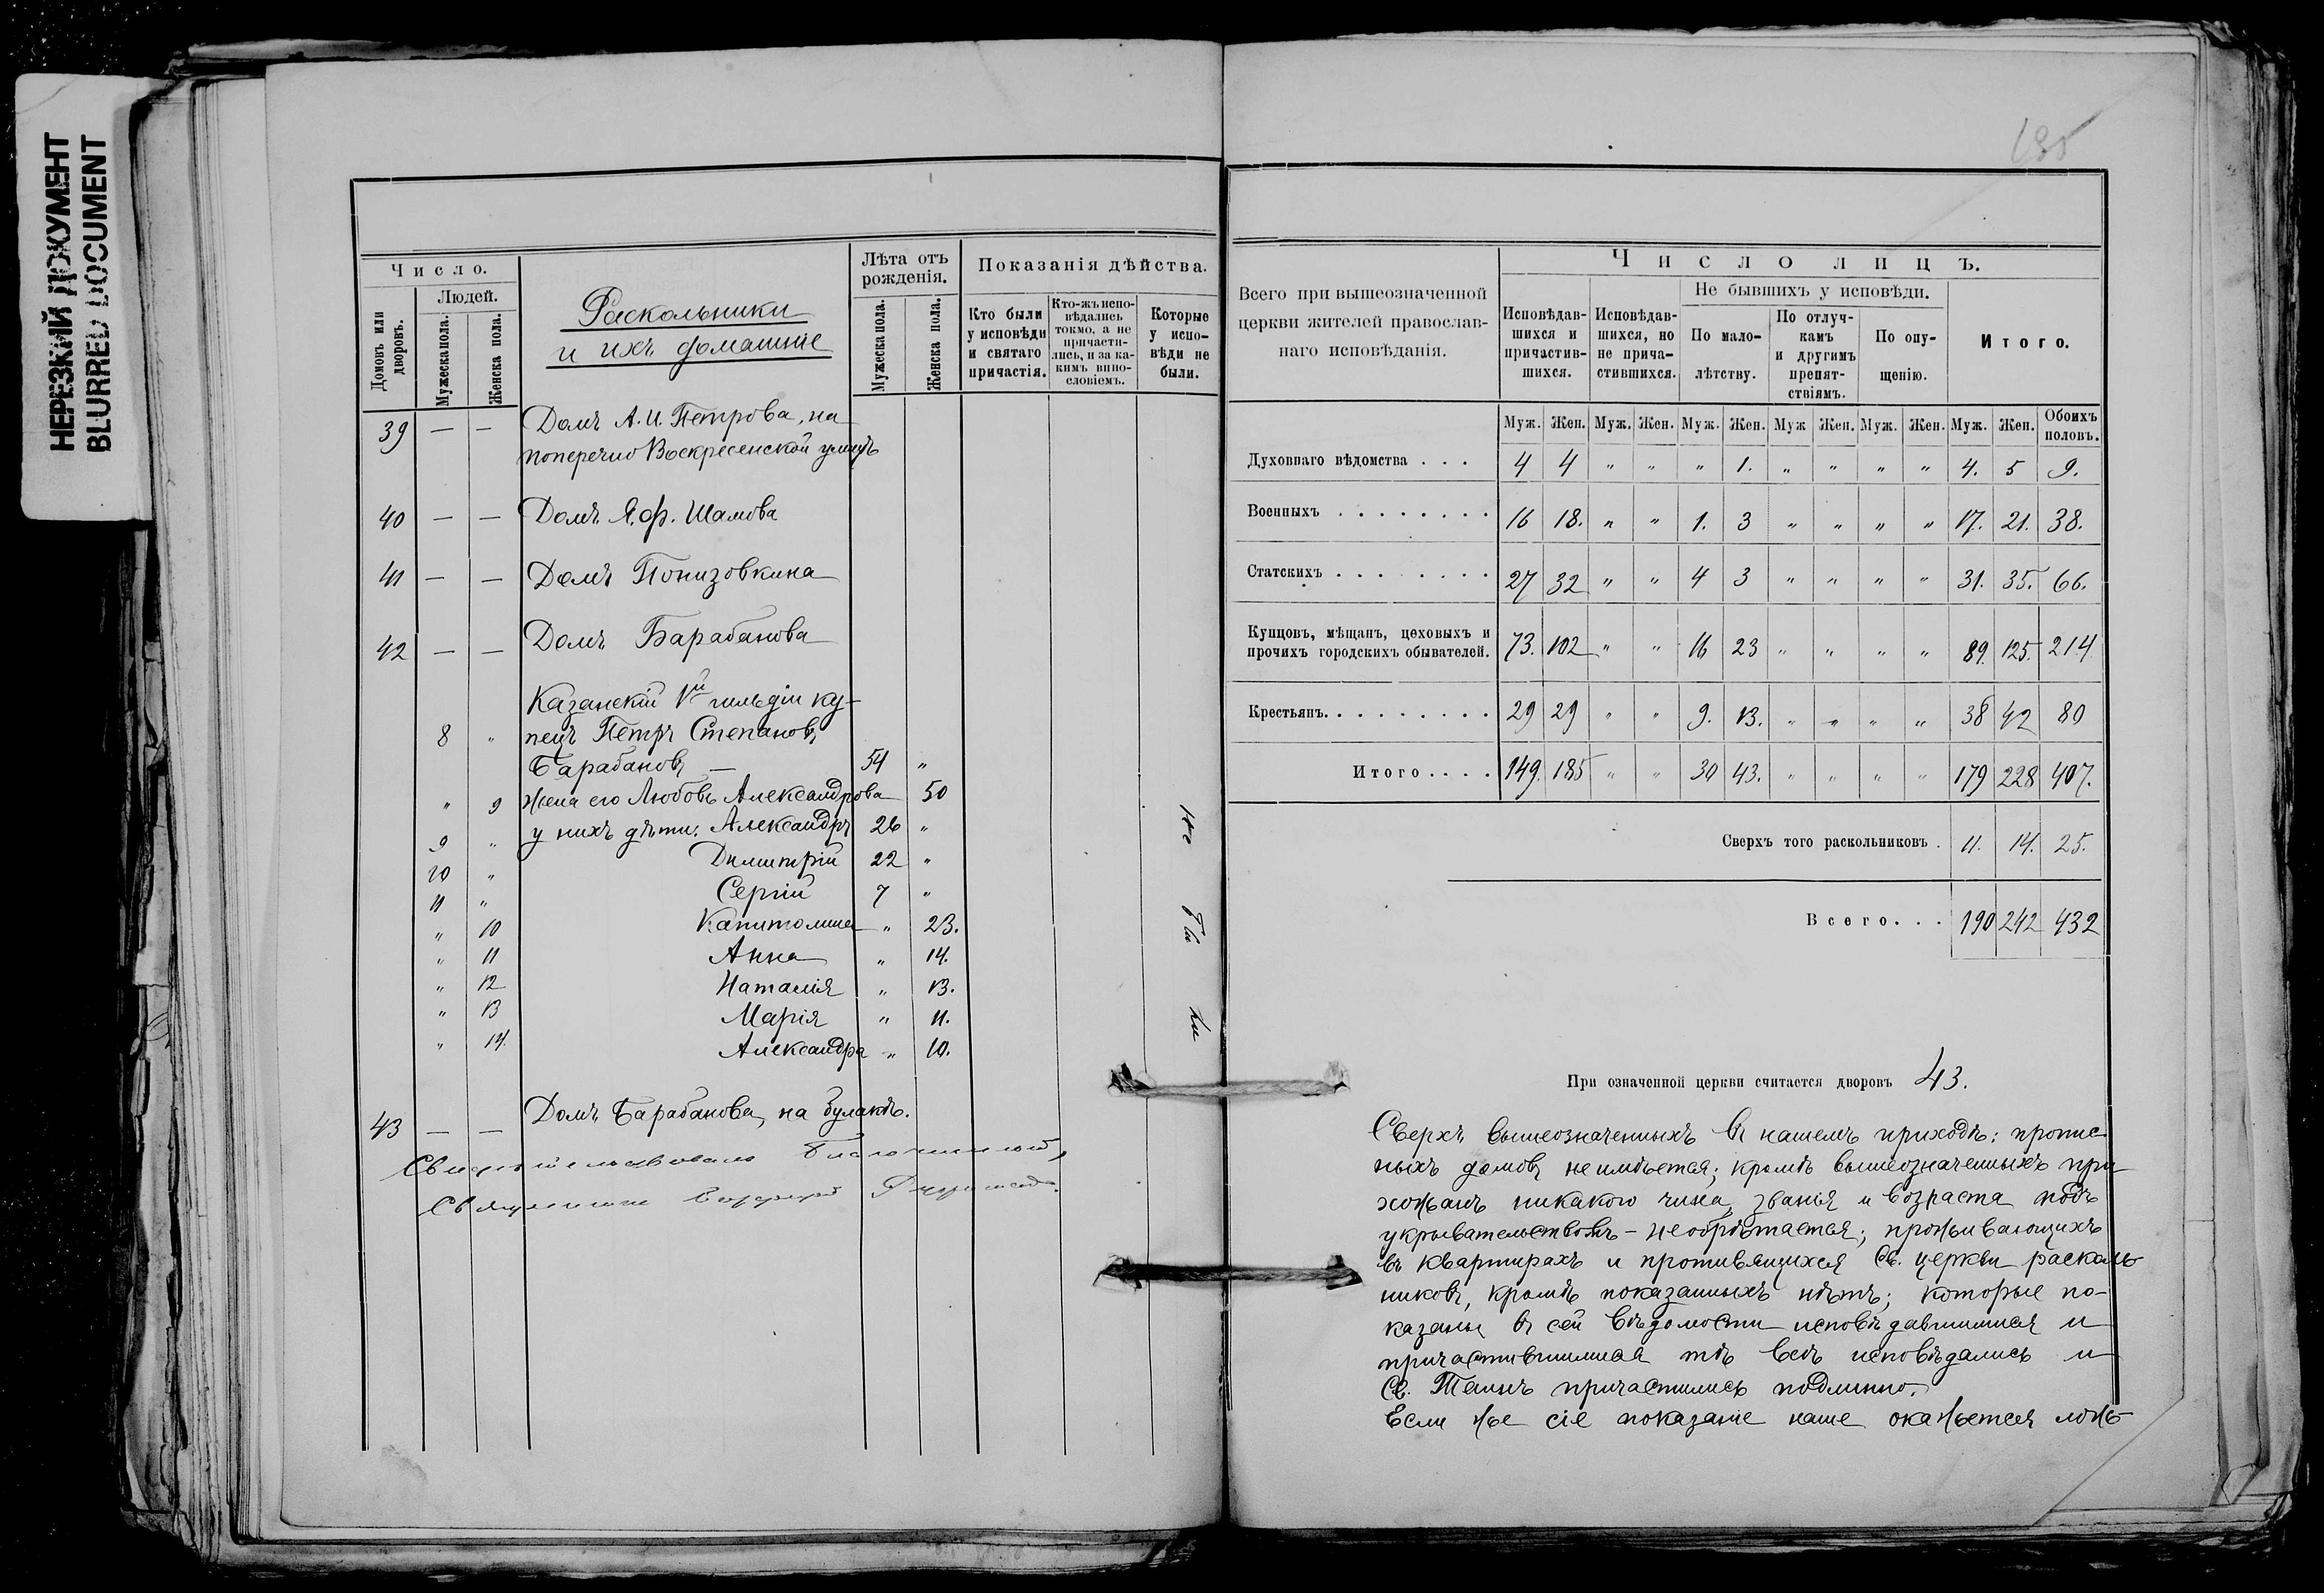 НЕРЕЗКИЙ ДОКУМЕНТ
BLURRED DOCUMENT
Число.
Домовъ или дворовъ.
Людей.
Мужеска пола.
Женска пола.
Раскольники
и ихъ домашніе
Лѣта отъ рожденія.
Мужеска пола.
Женска пола.
Показанія дѣйства.
Кто были у исповѣди и святаго причастія.
Кто-жъ исповѣдались токмо, а не причастились, и за какимъ винословіемъ.
Которые у исповѣди не были.
39 — — Домъ А. И. Петрова, на
поперечно Воскресенской улицѣ
40 — — Домъ Я. Ф. Шамова
41 — — Домъ Понизовкина
42 — — Домъ Барабанова
Казанскій 1й гильдіи ку-
8 " пецъ Петръ Степановъ
Барабановъ — 54 "
" 9 жена его Любовь Александрова 50
9 " у нихъ дѣти: Александръ 26 "
10 " Димитрій 22 "
11 " Сергій 7 "
" 10 Капитолина " 23.
" 11 Анна " 14.
" 12 Наталія " 13.
" 13 Марія " 11.
" 14. Александра " 10.
Не бы ли
43 — — Домъ Барабанова, на булакѣ.
Свидѣтельствовалъ Благочинный,
Священникъ
Всего при вышеозначенной
церкви жителей православ-
наго исповѣданія.
Число лицъ.
Исповѣдавшихся и причастившихся.
Исповѣдавшихся, но не причастившихся.
Не бывшихъ у исповѣди.
По малолѣтству.
По отлучкамъ и другимъ препятствіямъ.
По опущенію.
Итого.
Муж. Жен. Муж. Жен. Муж. Жен. Муж Жен. Муж. Жен. Муж. Жен. Обоихъ половъ.
Духовнаго вѣдомства . . . 4 4 " " " 1. " " " " 4. 5 9.
Военныхъ . . . . . . . . 16 18. " " 1. 3 " " " " 17. 21. 38.
Статскихъ . . . . . . . . 27 32 " " 4 3 " " " " 31. 35. 66.
Купцовъ, мѣщанъ, цеховыхъ и
прочихъ городскихъ обывателей. 73. 102 " " 16 23 " " " " 89. 125. 214
Крестьянъ. . . . . . . . . 29 29 " " 9. 13. " " " " 38 42 80
Итого . . . . 149. 185 " " 30 43. " " " " 179 228 407.
Сверхъ того раскольниковъ . 11. 14. 25.
Всего. . . 190 242 432
При означенной церкви считается дворовъ 43.
Сверхъ вышеозначенныхъ въ нашемъ приходѣ: пропис-
ныхъ домовъ не имѣется; кромѣ вышеозначенныхъ при-
хожанъ никакого чина, званія и возраста подъ
укрывательствомъ – необрѣтается; проживающихъ
въ квартирахъ и противящихся Св. церкви расколь-
никовъ, кромѣ показанныхъ нѣтъ; которые по-
казаны въ сей вѣдомости исповѣдавшимися и
причастившимися тѣ всѣ исповѣдались и
Св. Таинъ причастились подлинно.
Если же сіе показаніе наше окажется лож-